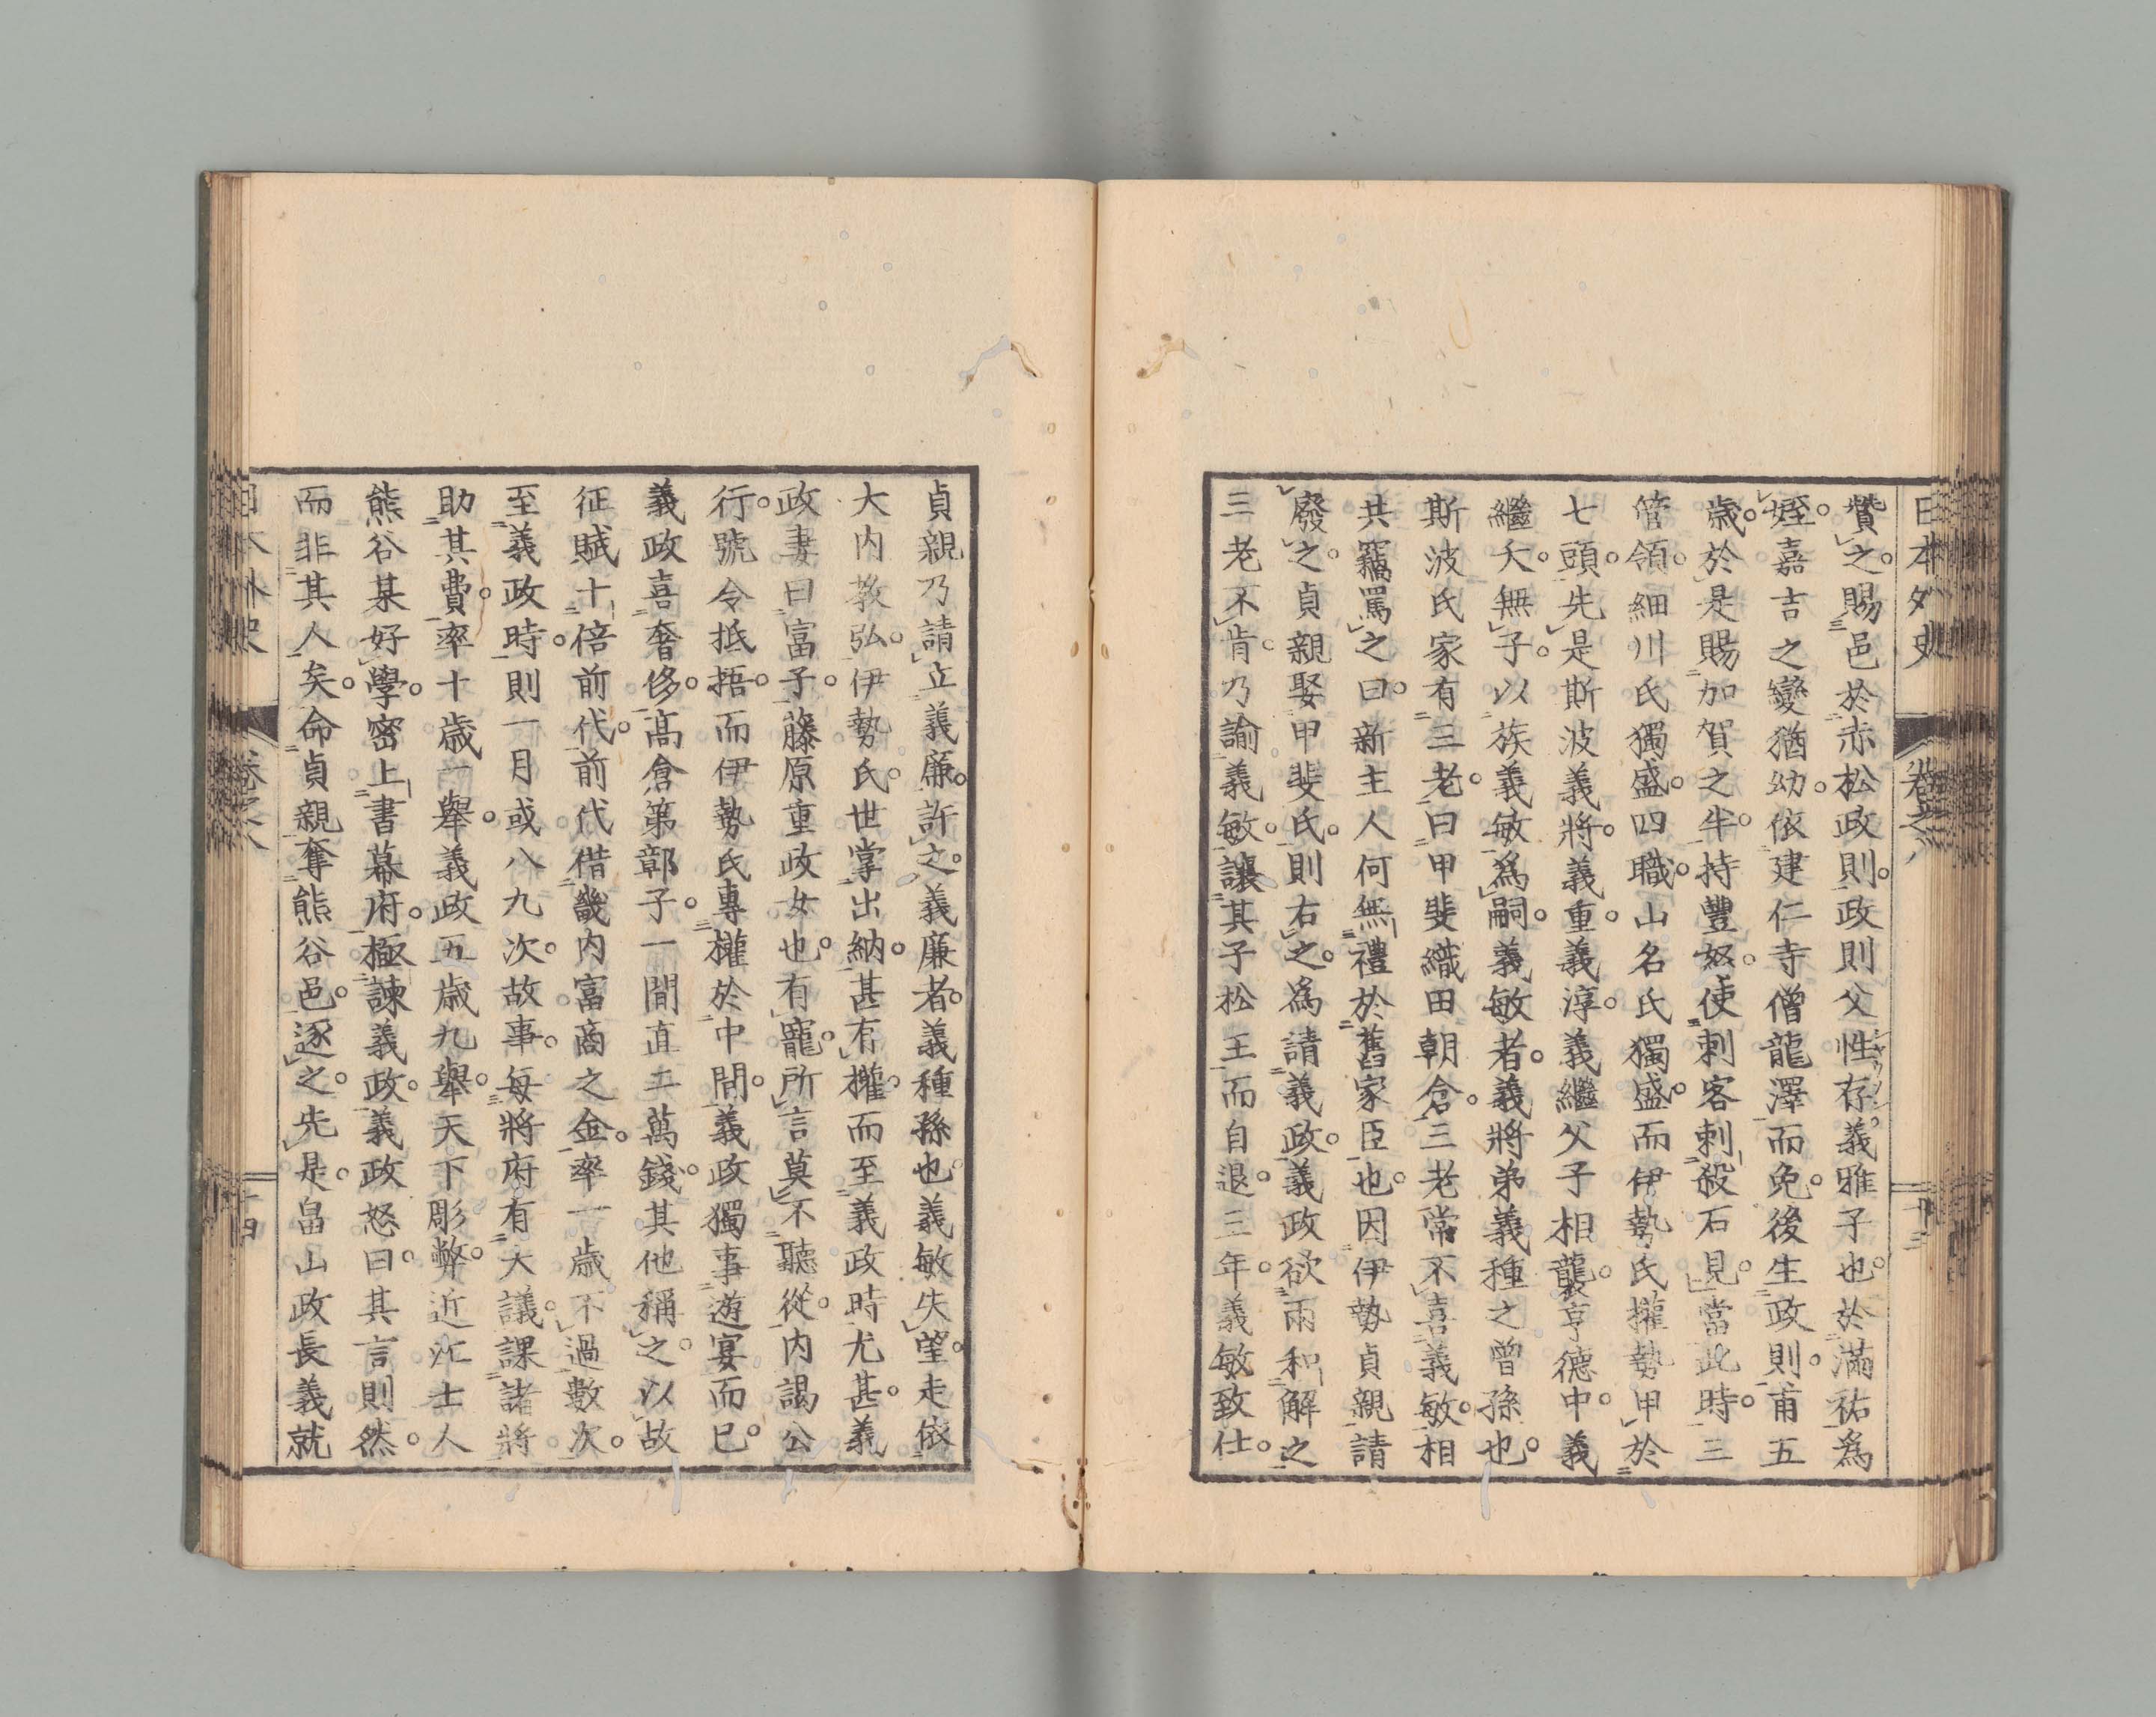 日本外史 卷之八 十三
贊之。賜邑於赤松政則。政則父性存義雅子也。於滿祐爲
姪。嘉吉之變猶幼。依建仁寺僧龍澤而免。後生政則。甫五
歲。於是賜加賀之半。持豐怒。使刺客刺殺石見。當此時。三
管領。細川氏獨盛。四職。山名氏獨盛。而伊勢氏權勢甲於
七頭。先是斯波義將。義重。義淳。義繼父子相襲。亨德中。義
繼夭。無子。以族義敏爲嗣。義敏者。義將弟義種之曾孫也。
斯波氏家有三老。曰甲斐織田朝倉。三老常不喜義敏。相
共竊罵之曰。新主人何無禮於舊家臣也。因伊勢貞親請
廢之。貞親娶甲斐氏。則右之。爲請義政。義政欲兩和解之
三老不肯。乃諭義敏。讓其子松王而自退。三年。義敏致仕。
貞親乃請立義廉。許之。義廉者。義種孫也。義敏失望。走依
大内敎弘。伊勢氏。世掌出納。甚有權。而至義政時尤甚。義
政妻曰富子。藤原重政女也。有寵。所言莫不聽從。内謁公
行。號令抵捂。而伊勢氏專權於中間。義政獨事遊宴而已。
義政喜奢侈。高倉第鄣子。一間直二萬錢。其他稱之。以故
征賦十倍前代。前代借畿内富商之金。率一歲不過數次。
至義政時。則一月或八九次。故事。每將府有大議。課諸將
助其費。率十歲一舉。義政五歲九舉。天下彫弊。近江士人
熊谷某好學。密上書幕府。極諫義政。義政怒曰。其言則然。
而非其人矣。命貞親奪熊谷邑。逐之。先是。畠山政長義就
日本外史 卷之八 十四